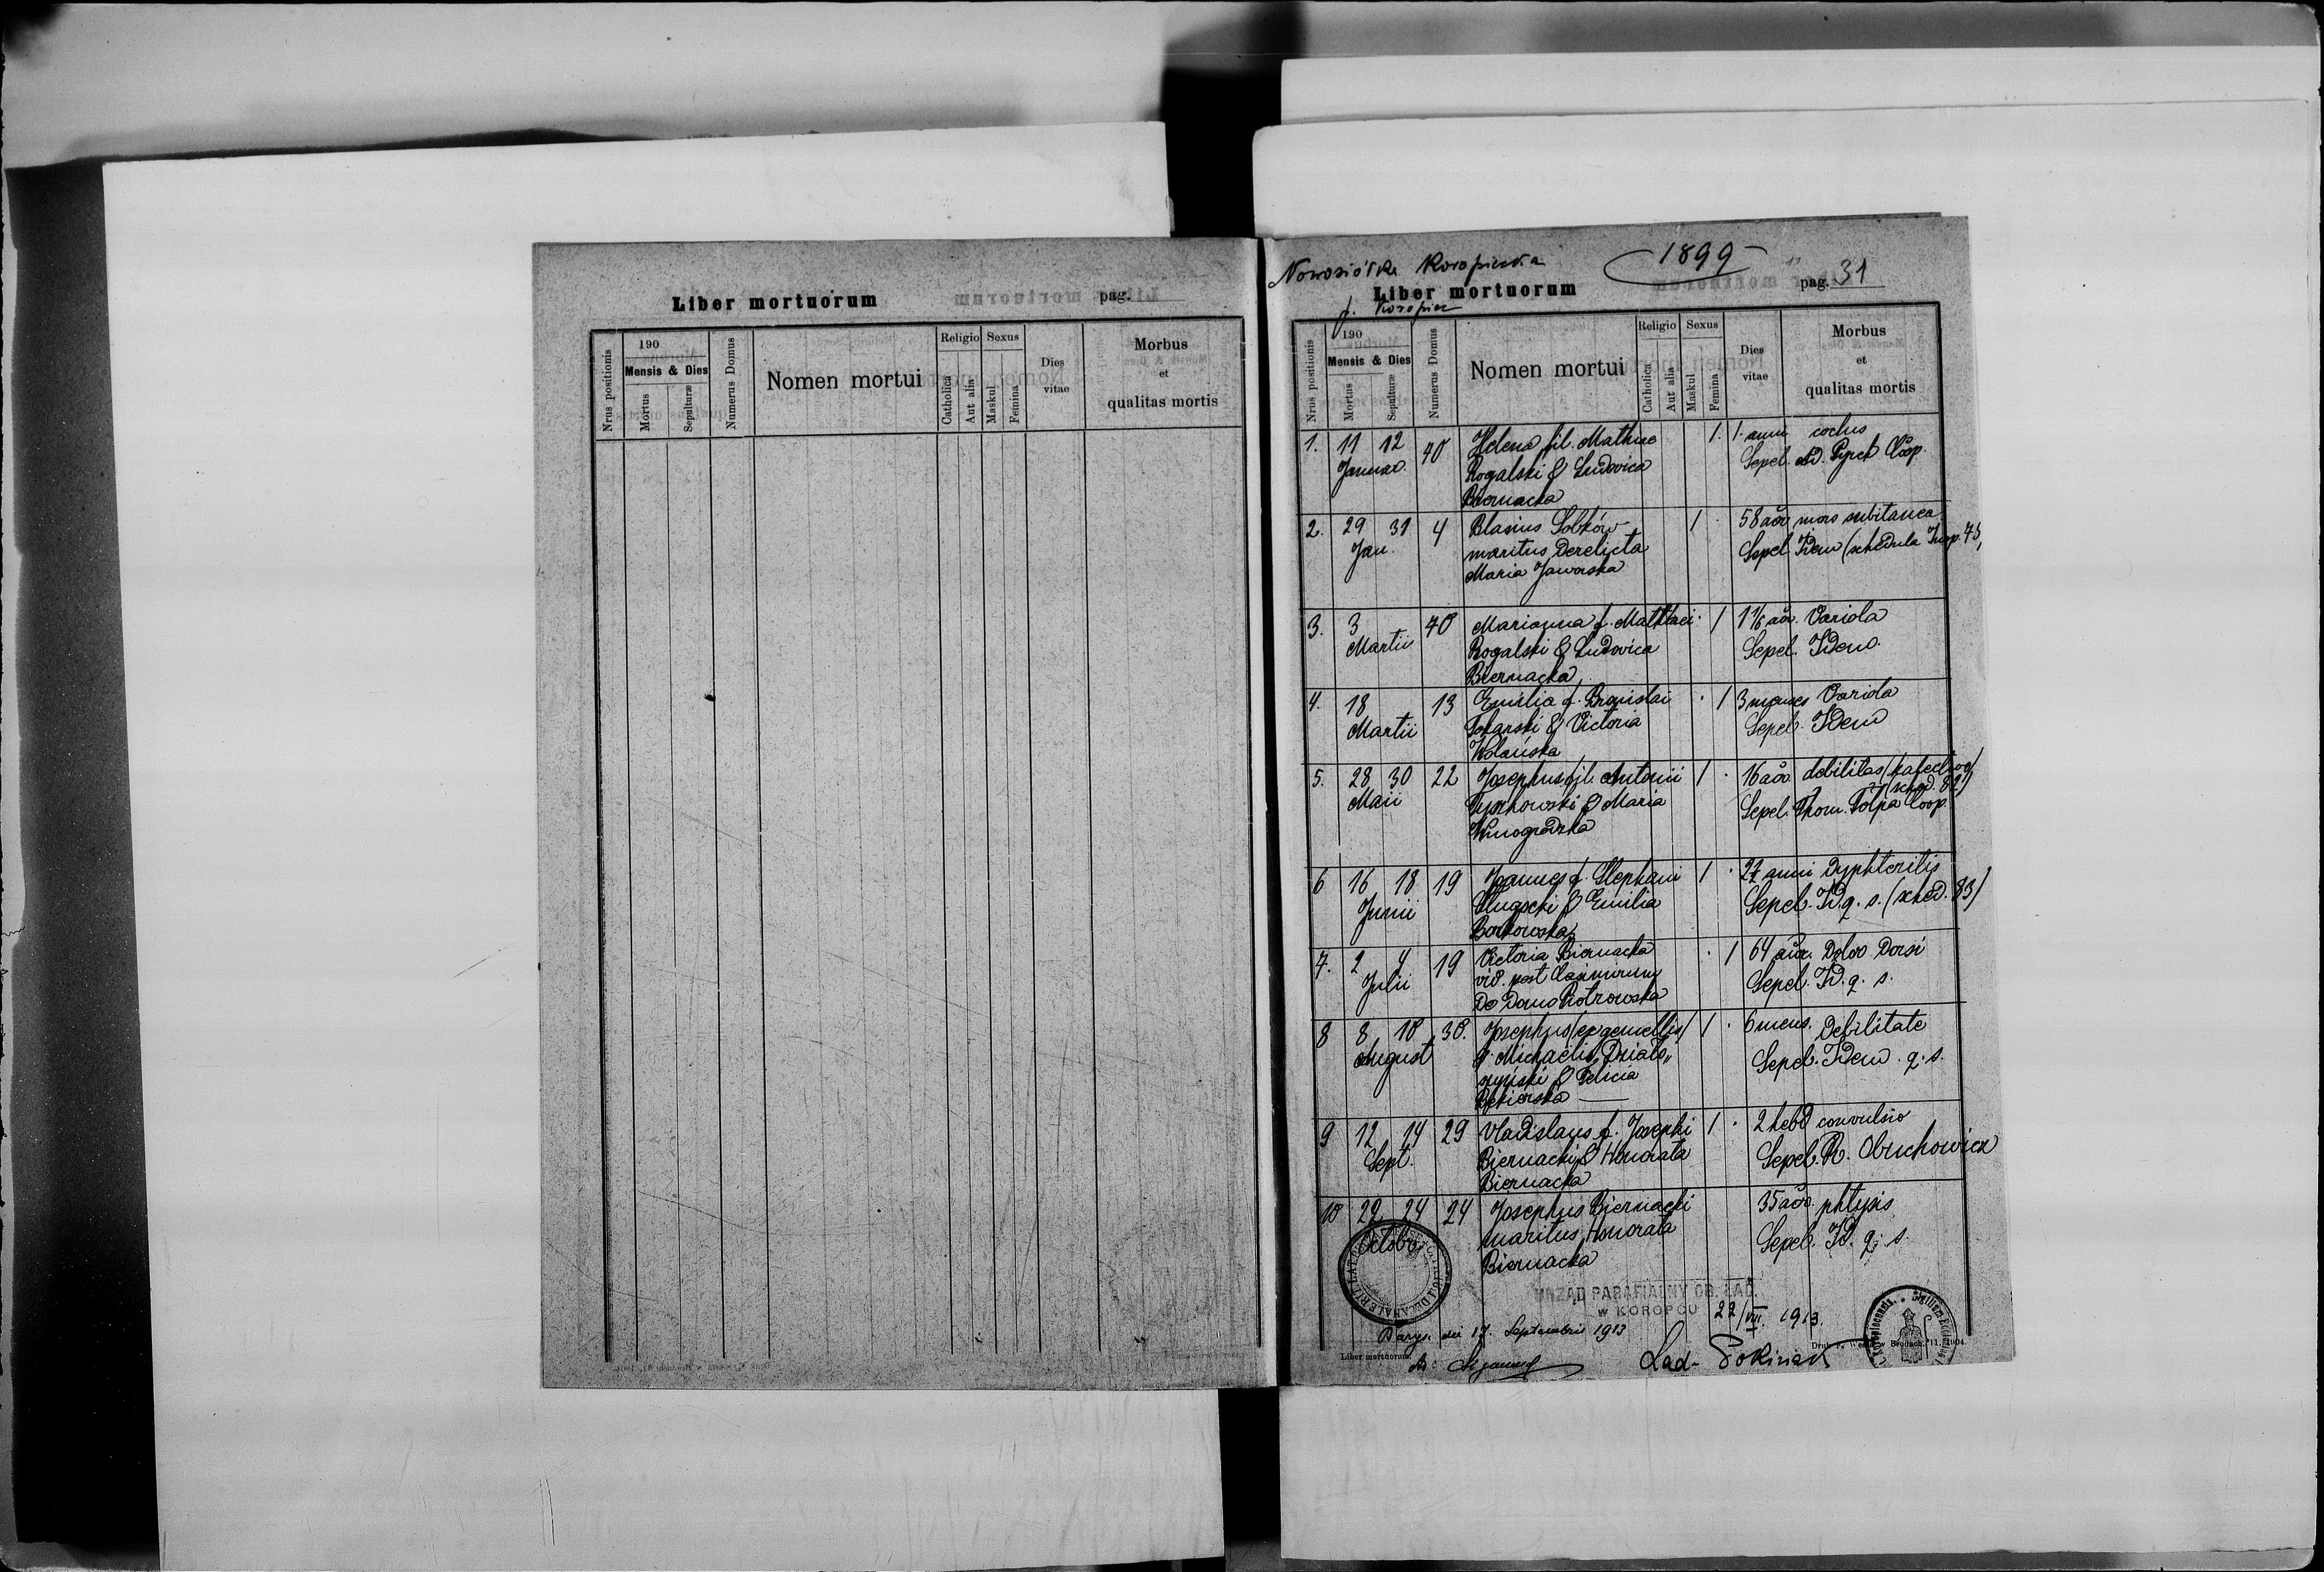 Liber mortuorum pag.
Nrus positionis
190
Mensis & Dies
Mortus
Sepulturæ
Numerus Domus
Nomen mortui
Religio
Catholica
Aut alia
Sexus
Maskul
Femina
Dies
vitae
Morbus
et
qualitas mortis
Nowosiółka Koropiecka 1899
Liber mortuorum pag. 31
p. Koropiec
Nrus positionis
190
Mensis & Dies
Mortus
Sepulturæ
Numerus Domus
Nomen mortui
Religio
Catholica
Aut alia
Sexus
Maskul
Femina
Dies
vitae
Morbus
et
qualitas mortis
1. 11 12 40 Helena fil. Mathiae 1. 1. anni
Januar. Rogalski & Ludovica Sepel. Ad. Pyrek Coop.
Biernacka
2. 29 31 4 Blasius Sobków 1 . 58 aor. mors subitanea
Jan. maritus derelicta Sepel. Idem (schedula
Maria Jaworska
3. 3 40 Marianna f. Matthaei . 1 1 1/6 aor. Variola
Martii Rogalski & Ludovica Sepel. Idem.
Biernacka
4. 18 13 Emilia f. Bronislai . 1 3 menses Variola
Martii Tokarski & Victoria Sepel. Idem
Wolańska
5. 28 30 22 Josephus fil. Antonii 1 . 16 aor. debilitas
Maii & Maria (sched. 82)
Winogrodzka Sepel. Thom. Tolpa Coop.
6 16 18 19 Joannes f. Stephani 1 . anni Dyphteritis
Junii Długocki & Emilia Sepel. Id. q. s. (sched. 83)
Borkowska
7. 2 4 19 Victoria Biernacka . 1 64 aor. Dolor Dorsi
Julii vid. post Casimirum Sepel. Id. q. s.
de Domo Piotrowska
8 8 10 30. Josephus (ex gemellis) 1 . 6 mens. Debilitate
August f. Michaelis Działo„ Sepel. Idem q. s.
szyński & Felicia
9 12 14 29 Vladislaus f. Josephi 1 . 2 hebd convulsio
Sept. Biernacki & Honorata Sepel. R. Obuchowicz
Biernacka
10 22 24 24 Josephus Biernacki 35 aor. phtysis
Octobr. maritus Honorata Sepel. Id. q. s.
Biernacka
URZĄD PARAFIALNY OB. ŁAĆ.
w KOROPCU 22/VIII. 1913.
Barysz die 17. Septembris 1913
Liber mortuorum